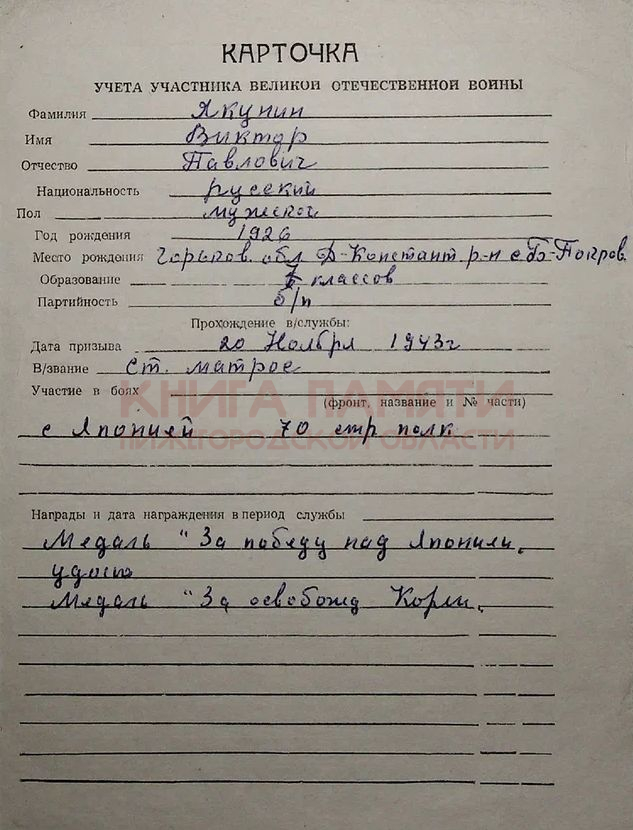 КАРТОЧКА
УЧЕТА УЧАСТНИКА ВЕЛИКОЙ ОТЕЧЕСТВЕННОЙ ВОЙНЫ
Фамилия Якунин
Имя Виктор
Отчество Павлович
Национальность русский
Пол мужской
Год рождения 1926
Место рождения Горьков. обл Д-Констант. р-н с Б-Покров.
Образование классов
Партийность б/п
Прохождение в/службы:
Дата призыва 20 Ноября 1943г
В/звание Ст. матрос
Участие в боях
(фронт, название и № части)
КНИГА ПАМЯТИ
НИЖЕГОРОДСКОЙ ОБЛАСТИ
с Японией 70 стр полк
Награды и дата награждения в период службы
Медаль "За победу над Японии.
Медаль "За освобожд Кореи.